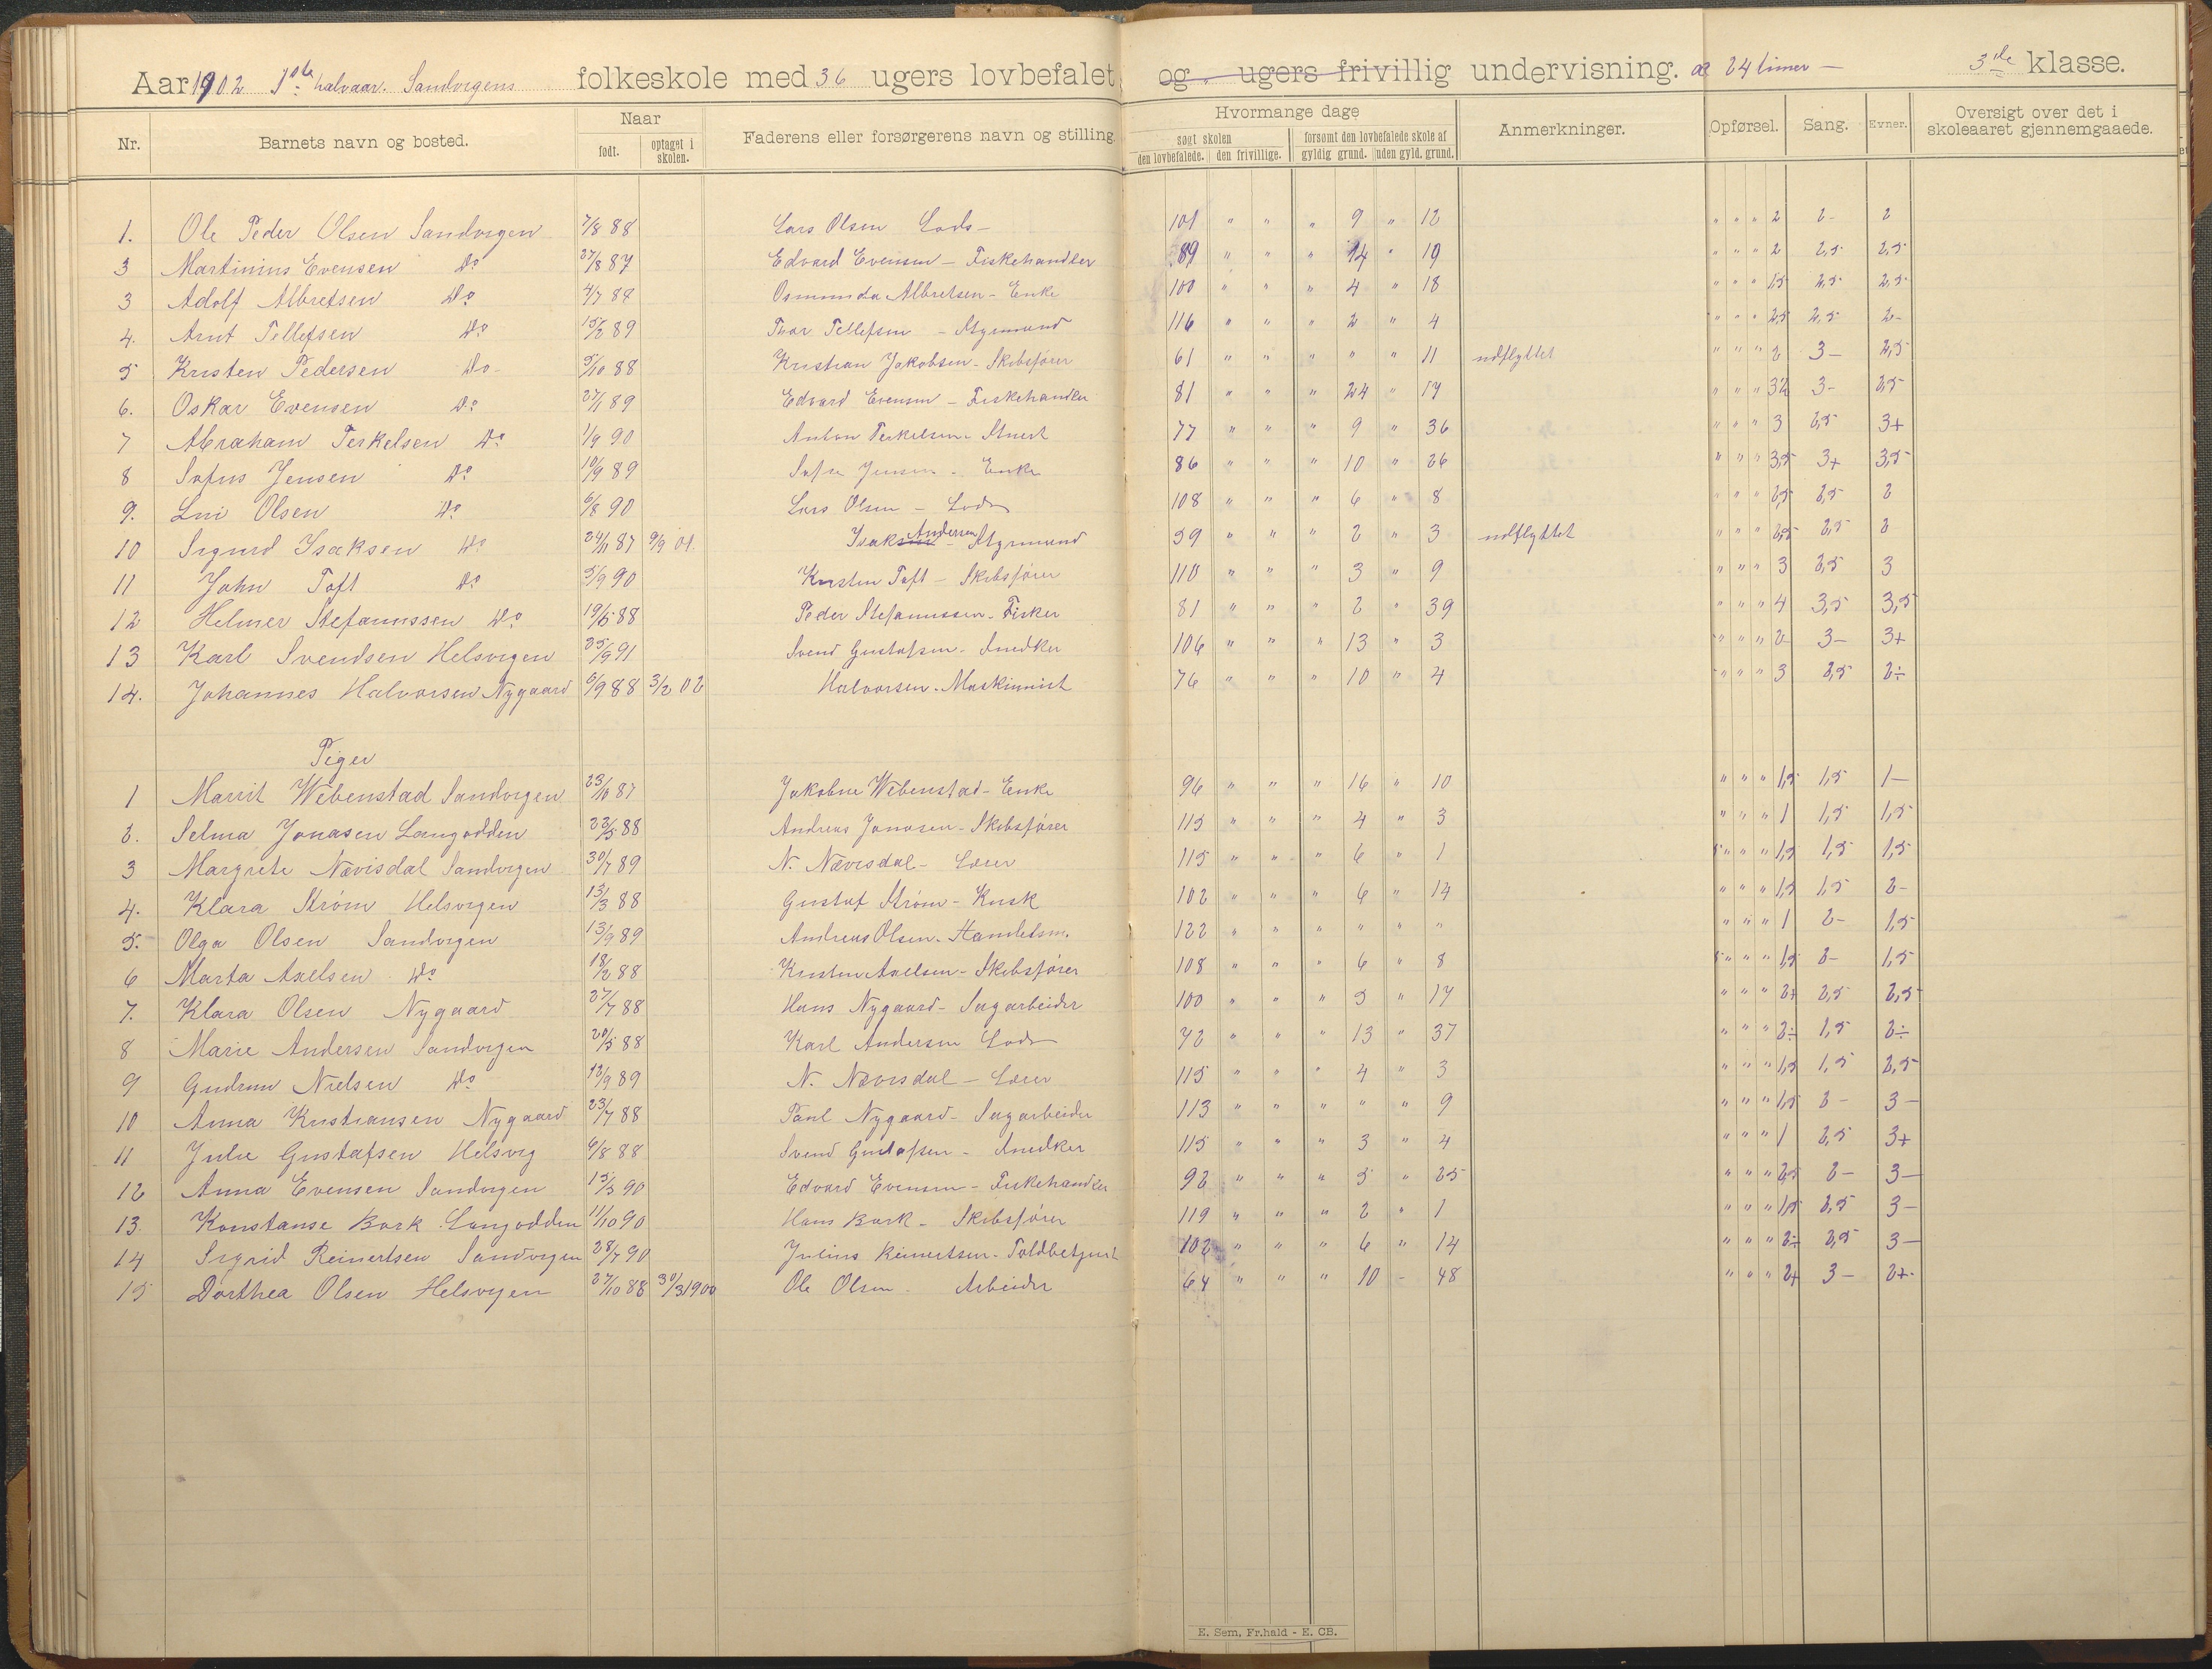 Aar 1902 1ste halvaar. Sandvigens folkeskole med 36 ugers lovbefalet og " ugers frivillig undervisning. a 24 timer — 3die klasse.
Nr. Barnets navn og bosted. Naar født. optaget i skolen. Faderens eller forsørgerens navn og stilling. Hvormange dage søgt skolen den lovbefalede. den frivillige. forsømt den lovbefalede skole af gyldig grund. uden gyld. grund. Anmerkninger. Opførsel. Sang. Evner. Oversigt over det i skoleaaret gjennemgaaede.
1. Ole Peder Olsen Sandvigen 7/8 88 Lars Olsen Lods - 101 " " " 9 " 12 " " " 2 2- 2
3 Martinius Evensen Do 27/8 87 Edvard Evensen - Fiskehandler 89 " " " 14 " 19 " " " 2 2,5 2,5
3 Adolf Albretsen Do 4/7 88 Osmunda Albretsen - Enke 100 " " " 4 " 18 " " " 1,5 2,5 2,5
4. Arnt Tellefsen Do 15/2 89 Ivar Tellefsen - Styrmand 116 " " " 2 " 4 " " " 2,5 2,5 2-
5 Kristen Pedersen Do 5/10 88 Kristian Jakobsen - Skibsfører 61 " " " " " 11 udflyttet " " " 2 3- 2,5
6. Oskar Evensen Do 27/1 89 Edvard Evensen - Fiskehandler 81 " " " 24 " 17 " " " 32 3- 2,5
7 Abraham Terkelsen Do 1/9 90 Anton Terkelsen - Stuert 77 " " " 9 " 36 " " " 3 2,5 3+
8 Sofus Jensen Do 10/9 89 Sofie Jensen - Enke 86 " " " 10 " 26 " " " 3,5 3+ 3,5
9. Lui Olsen Do 6/8 90 Lars Olsen - Lods 108 " " " 6 " 8 " " " 2,5 2,5 2
10 Sigurd Isaksen Do 24/11 87 9/9 01. Isak Andersen - Styrmand 59 " " " 2 " 3 udflyttet " " " 2,5 2,5 2
11 John Toft Do 5/9 90 Kristen Toft - Skibsfører 110 " " " 3 " 9 " " " 3 2,5 3
12 Helmer Stefanussen Do 19/5 88 Peder Stefanussen - Fisker 81 " " " 2 " 39 " " " 4 3,5 3,5
13 Karl Svendsen Helsvigen 25/9 91 Svend Gustafsen - Snedker 106 " " " 13 " 3 " " " 2 3- 3+
14. Johannes Halvorsen Nygaard 6/9 88 3/2 02 Halvorsen - Maskinist 76 " " " 10 " 4 " " " 3 2,5 2÷
Piger
1 Marrit Webenstad Sandvigen 23/10 87 Jakobine Webenstad - Enke 96 " " " 16 " 10 " " " 1,5 1,5 1-
2. Selma Jonasen Langodden 22/5 88 Andreas Jonasen - Skibsfører 115 " " " 4 " 3 " " " 1 1,5 1,5
3 Margrete Nævisdal Sandvigen 30/7 89 N. Nævisdal - Lærer 115 " " " 6 " 1 " " " 1,5 1,5 1,5
4. Klara Strøm Helsvigen 13/3 88 Gustaf Strøm - Kusk 102 " " " 6 " 14 " " " 1,5 1,5 2-
5. Olga Olsen Sandvigen 13/9 89 Andreas Olsen - Handelsm. 122 " " " " " " " " " 1 2- 1,5
6 Marta Axelsen Do 18/2 88 Kristen Axelsen - Skibsfører 108 " " " 6 " 8 " " " 1,5 2- 1,5
7. Klara Olsen Nygaard 27/7 88 Hans Nygaard - Sagarbeider 100 " " " 5 " 17 " " " 2+ 2,5 2,5
8 Marie Andersen Sandvigen 20/5 88 Karl Andersen Lods 72 " " " 13 " 37 " " " 2÷ 1,5 2÷
9 Gudrun Nielsen Do 12/9 89 N. Nævisdal - Lærer 115 " " " 4 " 3 " " " 1,5 1,5 2,5
10 Anna Kristiansen Nygaard 23/7 88 Paul Nygaard - Sagarbeider 113 " " " " " 9 " " " 1,5 2- 3-
11 Julie Gustafsen Helsvig 6/8 88 Svend Gustafsen - Snedker 115 " " " 3 " 4 " " " 1 2,5 3+
12 Anna Evensen Sandvigen 15/3 90 Edvard Evensen - Fiskehandler 92 " " " 5 " 25 " " " 2,5 2- 3-
13. Konstanse Bork Langodden 11/10 90 Hans Bork - Skibsfører 119 " " " 2 " 1 " " " 1,5 2,5 3-
14 Sigrid Reinertsen Sandvigen 28/7 90 Julius Reinertsen - Toldbetjent 102 " " " 6 " 14 " " " 2÷ 2,5 3-
15 Dorthea Olsen Helsvigen 27/10 88 30/3 1900 Ole Olsen - Arbeider 64 " " " 10 - 48 " " " 2+ 3- 2+
E. Sem, Fr.hald - E. CB.